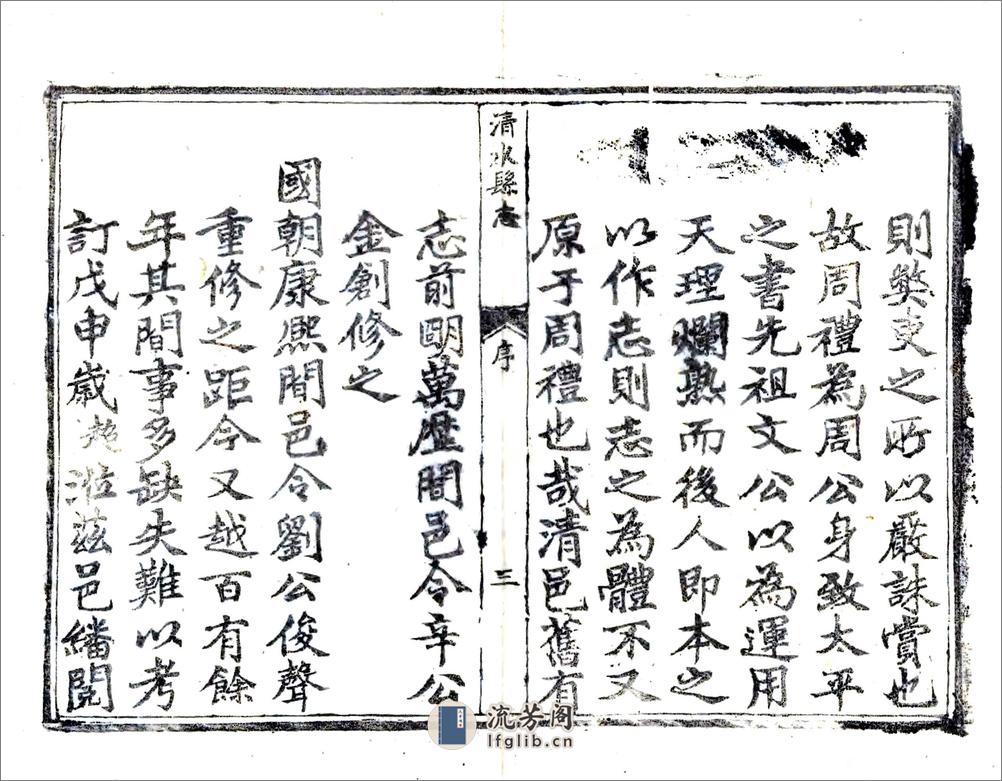 則獘吏之所以嚴誅賞也
故周禮為周公身致太平
之書先祖文公以為運用
天理爛熟而後人即本之
以作志則志之為體不又
原于周禮也哉清邑舊有
清水縣志
序
三
志前明萬歷間邑令辛公
金創修之
國朝康熙間邑令劉公俊聲
重修之距今又越百有餘
年其間事多缺失難以考
訂戊申歲超涖茲邑繙閱
流芳阁
lfglib.cn